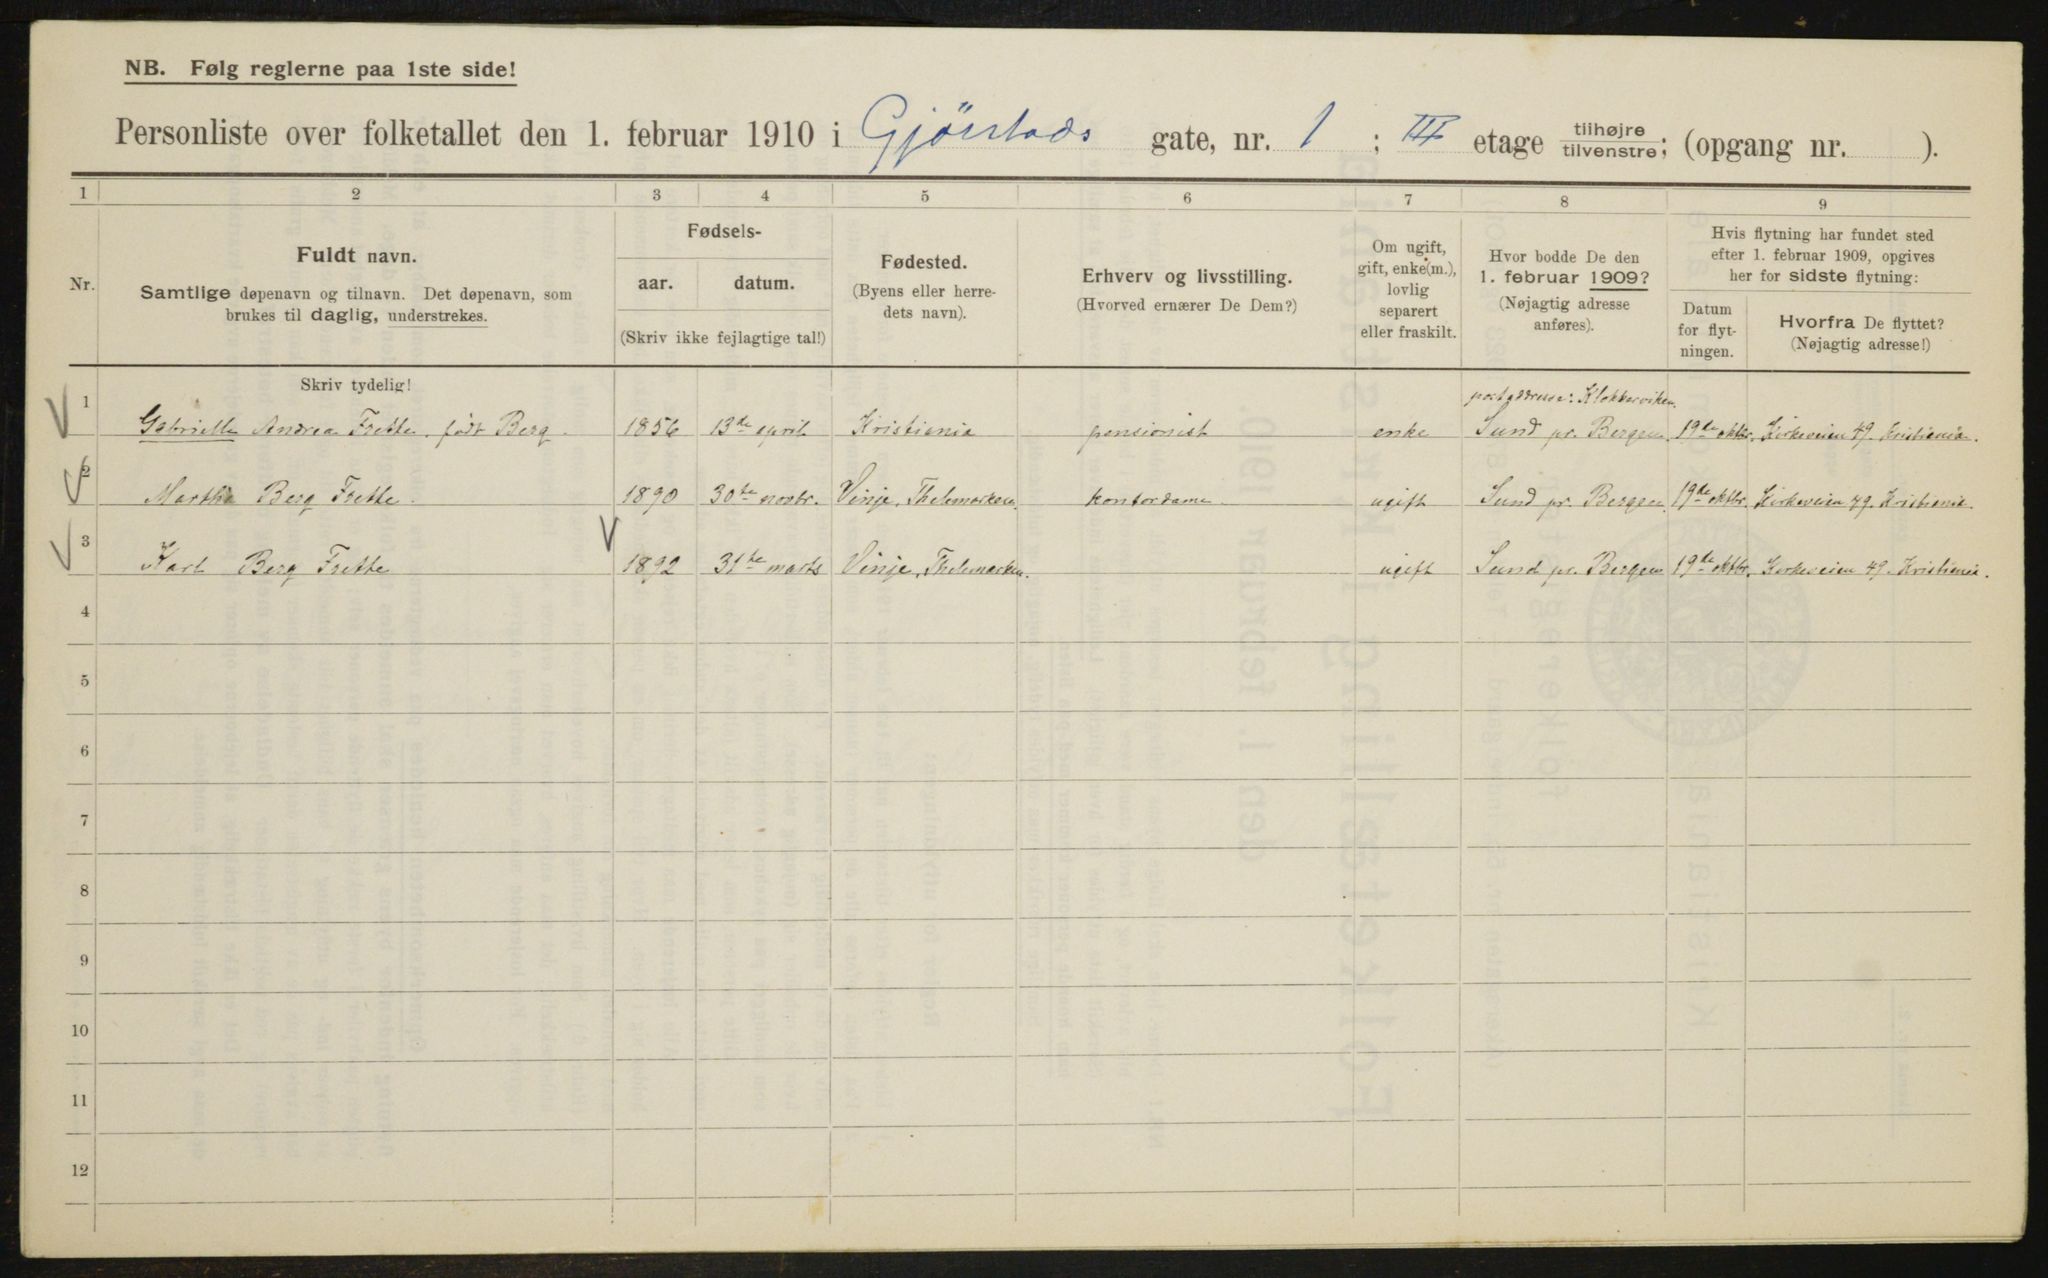 NB. Følg reglerne paa 1ste side!
Personliste over folketallet den 1. februar 1910 i Gjörstads gate, nr. 1 ; III etage tilhøjre/tilvenstre; (opgang nr. ).
1 2 3 4 5 6 7 8 9
Nr.
Fuldt navn.
Samtlige døpenavn og tilnavn. Det døpenavn, som
brukes til daglig, understrekes.
Fødsels-
aar. datum.
(Skriv ikke fejlagtige tal!)
Fødested.
(Byens eller herre-
dets navn).
Erhverv og livsstilling.
(Hvorved ernærer De Dem?)
Om ugift,
gift, enke(m.),
lovlig
separert
eller fraskilt.
Hvor bodde De den
1. februar 1909?
(Nøjagtig adresse
anføres).
Hvis flytning har fundet sted
efter 1. februar 1909, opgives
her for sidste flytning:
Datum
for flyt-
ningen.
Hvorfra De flyttet?
(Nøjagtig adresse!)
Skriv tydelig!
postaddresse: Klokkarviken.
1 Gabrielle Andrea Frette, født Berg. 1856 13de april Kristiania pensionist enke Sund pr. Bergen 19de oktbr. Kirkeveien 49. Kristiania.
2 Martha Berg Frette. 1890 30te novbr. Vinje, Thelemarken. kontordame ugift Sund pr. Bergen. 19de oktbr. Kirkeveien 49. Kristiania.
3 Karl Berg Frette 1892 31te marts Vinje, Thelemarken. ugift Sund pr. Bergen 19de oktbr. Kirkeveien 49. Kristiania.
4
5
6
7
8
9
10
11
12